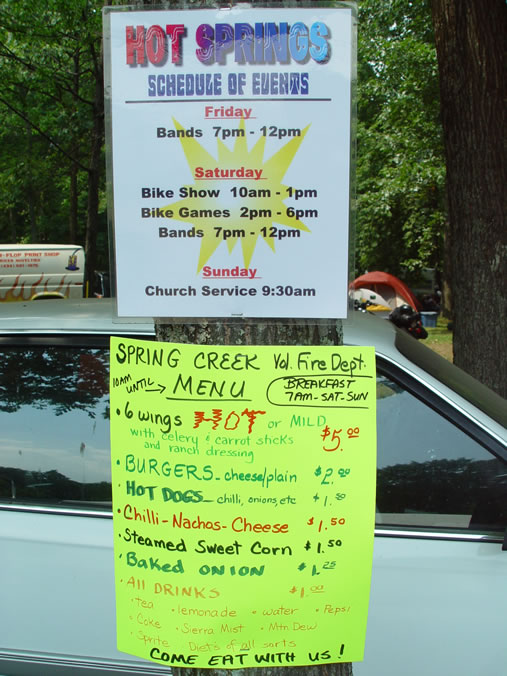 HOT SPRINGS
SCHEDULE OF EVENTS
Friday
Bands 7pm - 12pm
Saturday
Bike Show 10am - 1pm
Bike Games 2pm - 6pm
Bands 7pm - 12pm
Sunday
Church Service 9:30am
-FLOP PRINT SHOP
SPRING CREEK Vol. Fire Dept.
10AM UNTIL → MENU
BREAKFAST
7AM-SAT-SUN
• 6 wings HOT or MILD $5.00
with celery & carrot sticks
and ranch dressing
• BURGERS - cheese/plain $2.00
• HOT DOGS - chilli, onions, etc $1.50
• Chilli - Nachos - Cheese $1.50
• Steamed Sweet Corn $1.50
• Baked ONION $1.25
• All DRINKS $1.00
• tea • lemonade • water • Pepsi
• Coke • Sierra Mist • Mtn Dew
• Sprite Diet's of all sorts
COME EAT WITH US!